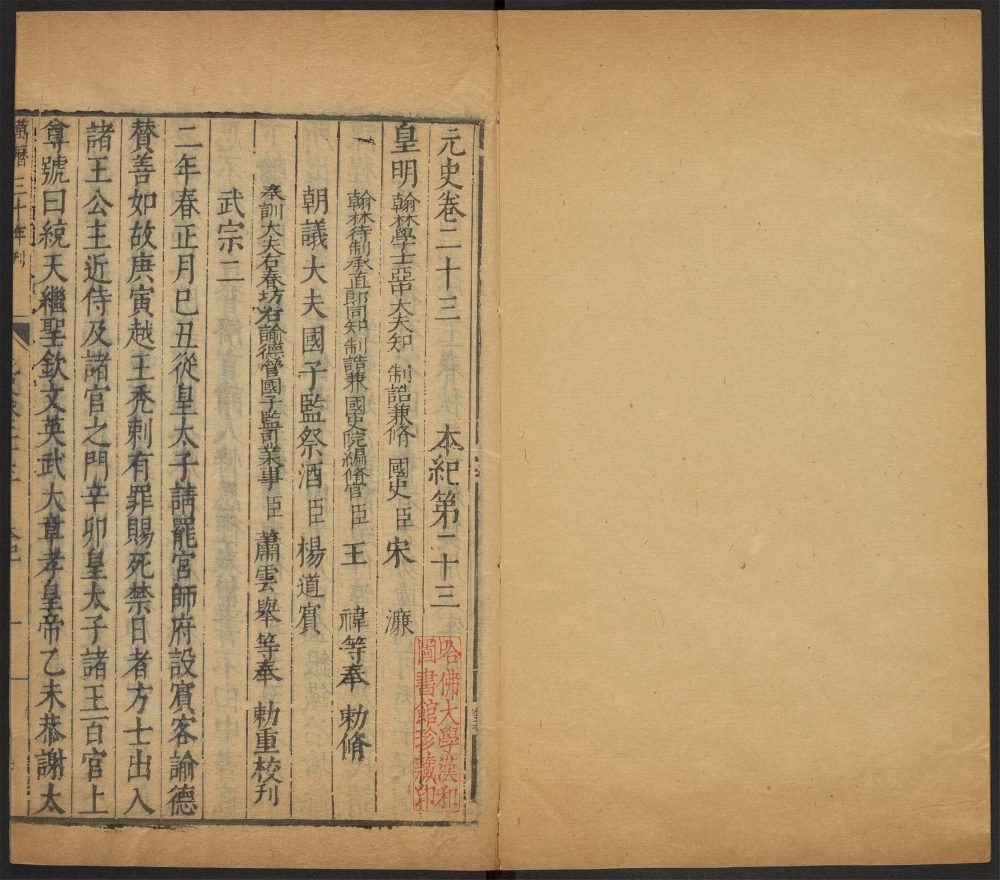 元史卷二十三 本紀第二十三
皇明翰林學士亞中大夫知 制誥兼脩 國史臣宋 濂
翰林待制承直郎同知制誥兼國史院編脩官臣王 禕等奉 勅脩
朝議大夫國子監祭酒臣楊道賓
奉訓大夫右春坊右諭德管國子監司業事臣蕭雲舉等奉 勅重校刊
武宗二
二年春正月己丑從皇太子請罷宮師府設賓客諭德
賛善如故庚寅越王禿剌有罪賜死禁日者方士出入
諸王公主近侍及諸官之門辛卯皇太子諸王百官上
尊號曰統天繼聖欽文英武大章孝皇帝乙未恭謝太
萬曆三十年刊
哈佛大學漢和
圖書館珍藏印